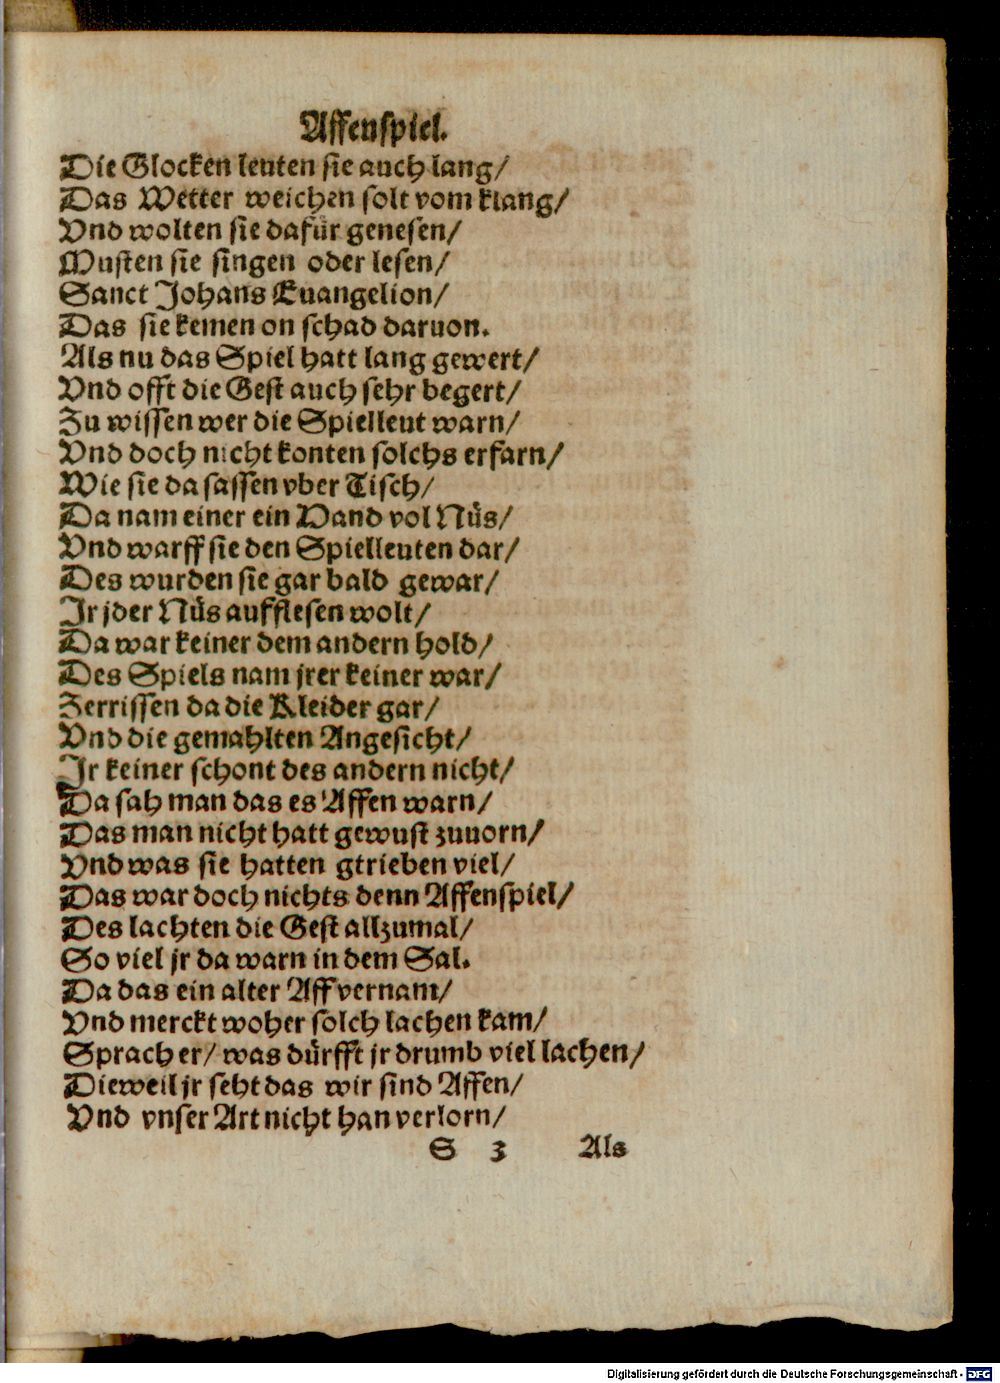 Affenſpiel.
Die Glocken leuten ſie auch lang/
Das Wetter weichen ſolt vom klang/
Vnd wolten ſie dafür geneſen/
Muſten ſie ſingen oder leſen/
Sanct Johans Euangelion/
Das ſie kemen on ſchad daruon.
Als nu das Spiel hatt lang gewert/
Vnd offt die Geſt auch ſehr begert/
Zu wiſſen wer die Spielleut warn/
Vnd doch nicht konten ſolchs erfarn/
Wie ſie da ſaſſen vber Tiſch/
Da nam einer ein Hand vol Nüs/
Vnd warff ſie den Spielleuten dar/
Des wurden ſie gar bald gewar/
Jr jder Nüs auffleſen wolt/
Da war keiner dem andern hold/
Des Spiels nam jrer keiner war/
Zerriſſen da die Kleider gar/
Vnd die gemahlten Angeſicht/
Jr keiner ſchont des andern nicht/
Da ſah man das es Affen warn/
Das man nicht hatt gewuſt zuuorn/
Vnd was ſie hatten gtrieben viel/
Das war doch nichts denn Affenſpiel/
Des lachten die Geſt allzumal/
So viel jr da warn in dem Sal.
Da das ein alter Aff vernam/
Vnd merckt woher ſolch lachen kam/
Sprach er/ was dürfft jr drumb viel lachen/
Dieweil jr ſeht das wir ſind Affen/
Vnd vnſer Art nicht han verlorn/
S 3 Als
Digitalisierung gefördert durch die Deutsche Forschungsgemeinschaft - DFG